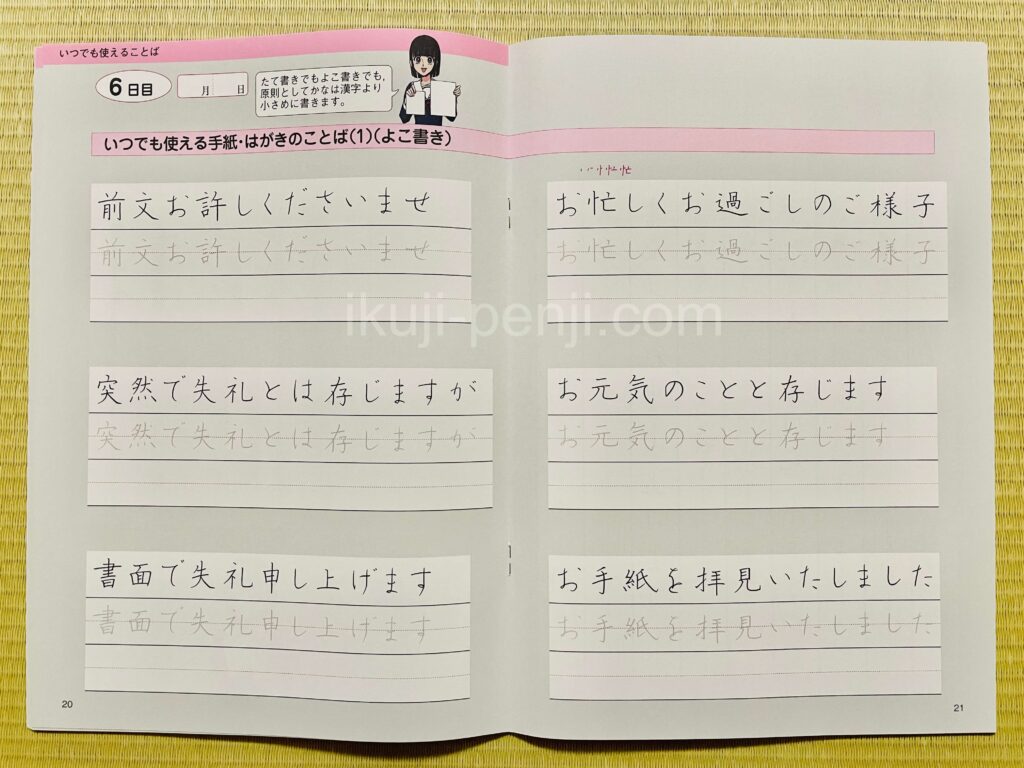 いつでも使えることば
6日目
月 日
たて書きでもよこ書きでも、
原則としてかなは漢字より
小さめに書きます。
いつでも使える手紙・はがきのことば(1)(よこ書き)
前文お許しくださいませ
前文お許しくださいませ
突然で失礼とは存じますが
突然で失礼とは存じますが
書面で失礼申し上げます
書面で失礼申し上げます
20
忙
お忙しくお過ごしのご様子
お忙しくお過ごしのご様子
お元気のことと存じます
お元気のことと存じます
お手紙を拝見いたしました
お手紙を拝見いたしました
21
ikuji-penji.com